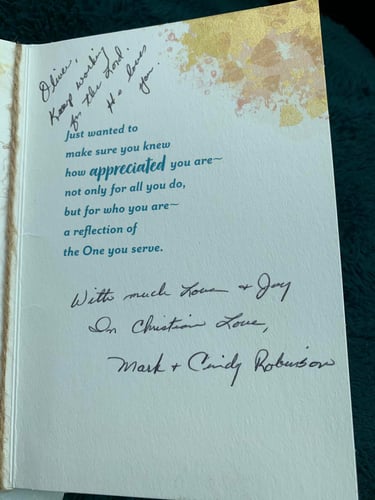 Oliver,
Keep working
for the Lord.
He loves
you.
Just wanted to
make sure you knew
how appreciated you are~
not only for all you do,
but for who you are~
a reflection of
the One you serve.
With much Love + Joy
In Christian Love,
Mark + Cindy Robinson